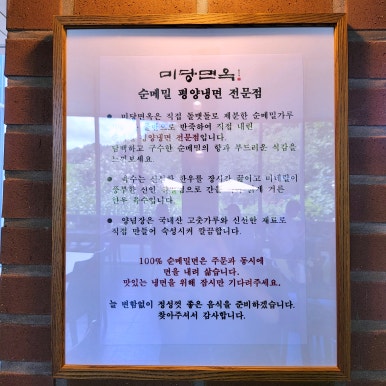 미당면옥
순메밀 평양냉면 전문점
미당면옥은 직접 돌맷돌로 제분한 순메밀가루
반죽하여 직접 내린
평양냉면 전문점입니다.
담백하고 구수한 순메밀의 향과 부드러운 식감을
느껴보세요
육수는 신선한 한우를 장시간 끓이고 미네랄이
풍부한 거른
한우 육수입니다.
양념장은 국내산 고춧가루와 신선한 재료로
직접 만들어 숙성시켜 깔끔합니다.
100% 순메밀면은 주문과 동시에
면을 내려 삶습니다.
맛있는 냉면을 위해 잠시만 기다려주세요.
늘 변함없이 정성껏 좋은 음식을 준비하겠습니다.
찾아주셔서 감사합니다.